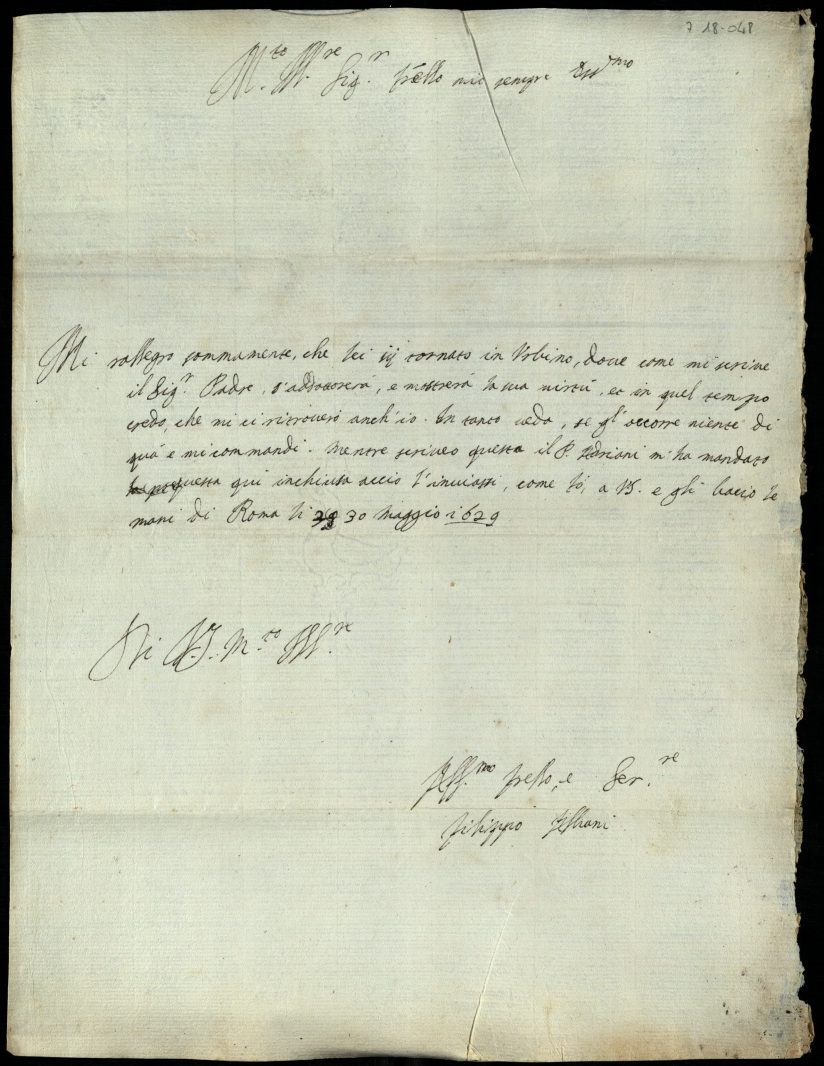 7 18-048
M.to Ill.re Sig.r frello mio sempre
Mi rallegro sommamente, che lei sij tornato in Urbino, doue come mi scriue
il Sig.r Padre, s'addotorerà, e mostrerà la sua uirtù, et in quel tempo
credo, che mi ci ritrouerò anch'io. In tanto ueda, se gl'occorre niente di
quà e mi commandi. Mentre scriueo questa il P. Adriani m'ha mandato
questa qui inchiusa acciò l'inuiassi, come fò, a V.S. e gli bacio le
mani di Roma li 30 Maggio 1629
Di V.S. M.to Ill.re
Aff.mo frello, e Ser.re
Filippo